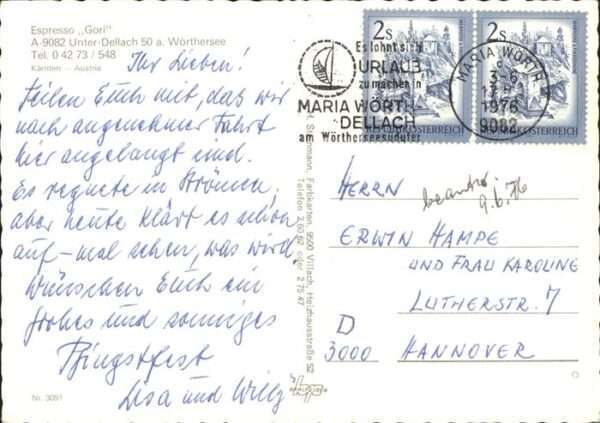 Espresso „Gori"
A-9082 Unter-Dellach 50 a. Wörthersee
Tel. 0 42 73 / 548
Kärnten — Austria
Ihr Lieben!
Teilen Euch mit, das wir
nach angenehmer Fahrt
hier angelangt sind.
Es regnete in Strömen,
aber heute klärt es schon
auf - mal sehen, was wird,
wünschen Euch ein
frohes und sonniges
Pfingstfest
Lisa und Willy
Nr. 3091
Farbkarten, 9500 Villach, Holzhausstraße 52
Telefon
2s
2s
REPUBLIK ÖSTERREICH
Es lohnt sich
URLAUB
zu machen in
MARIA WÖRTH
DELLACH
am Wörtherseesüdufer
MARIA WÖRTH
1976
9082
beantw.
9.6.76
HERRN
ERWIN HAMPE
UND FRAU KAROLINE
LUTHERSTR. 7
D
3000 HANNOVER